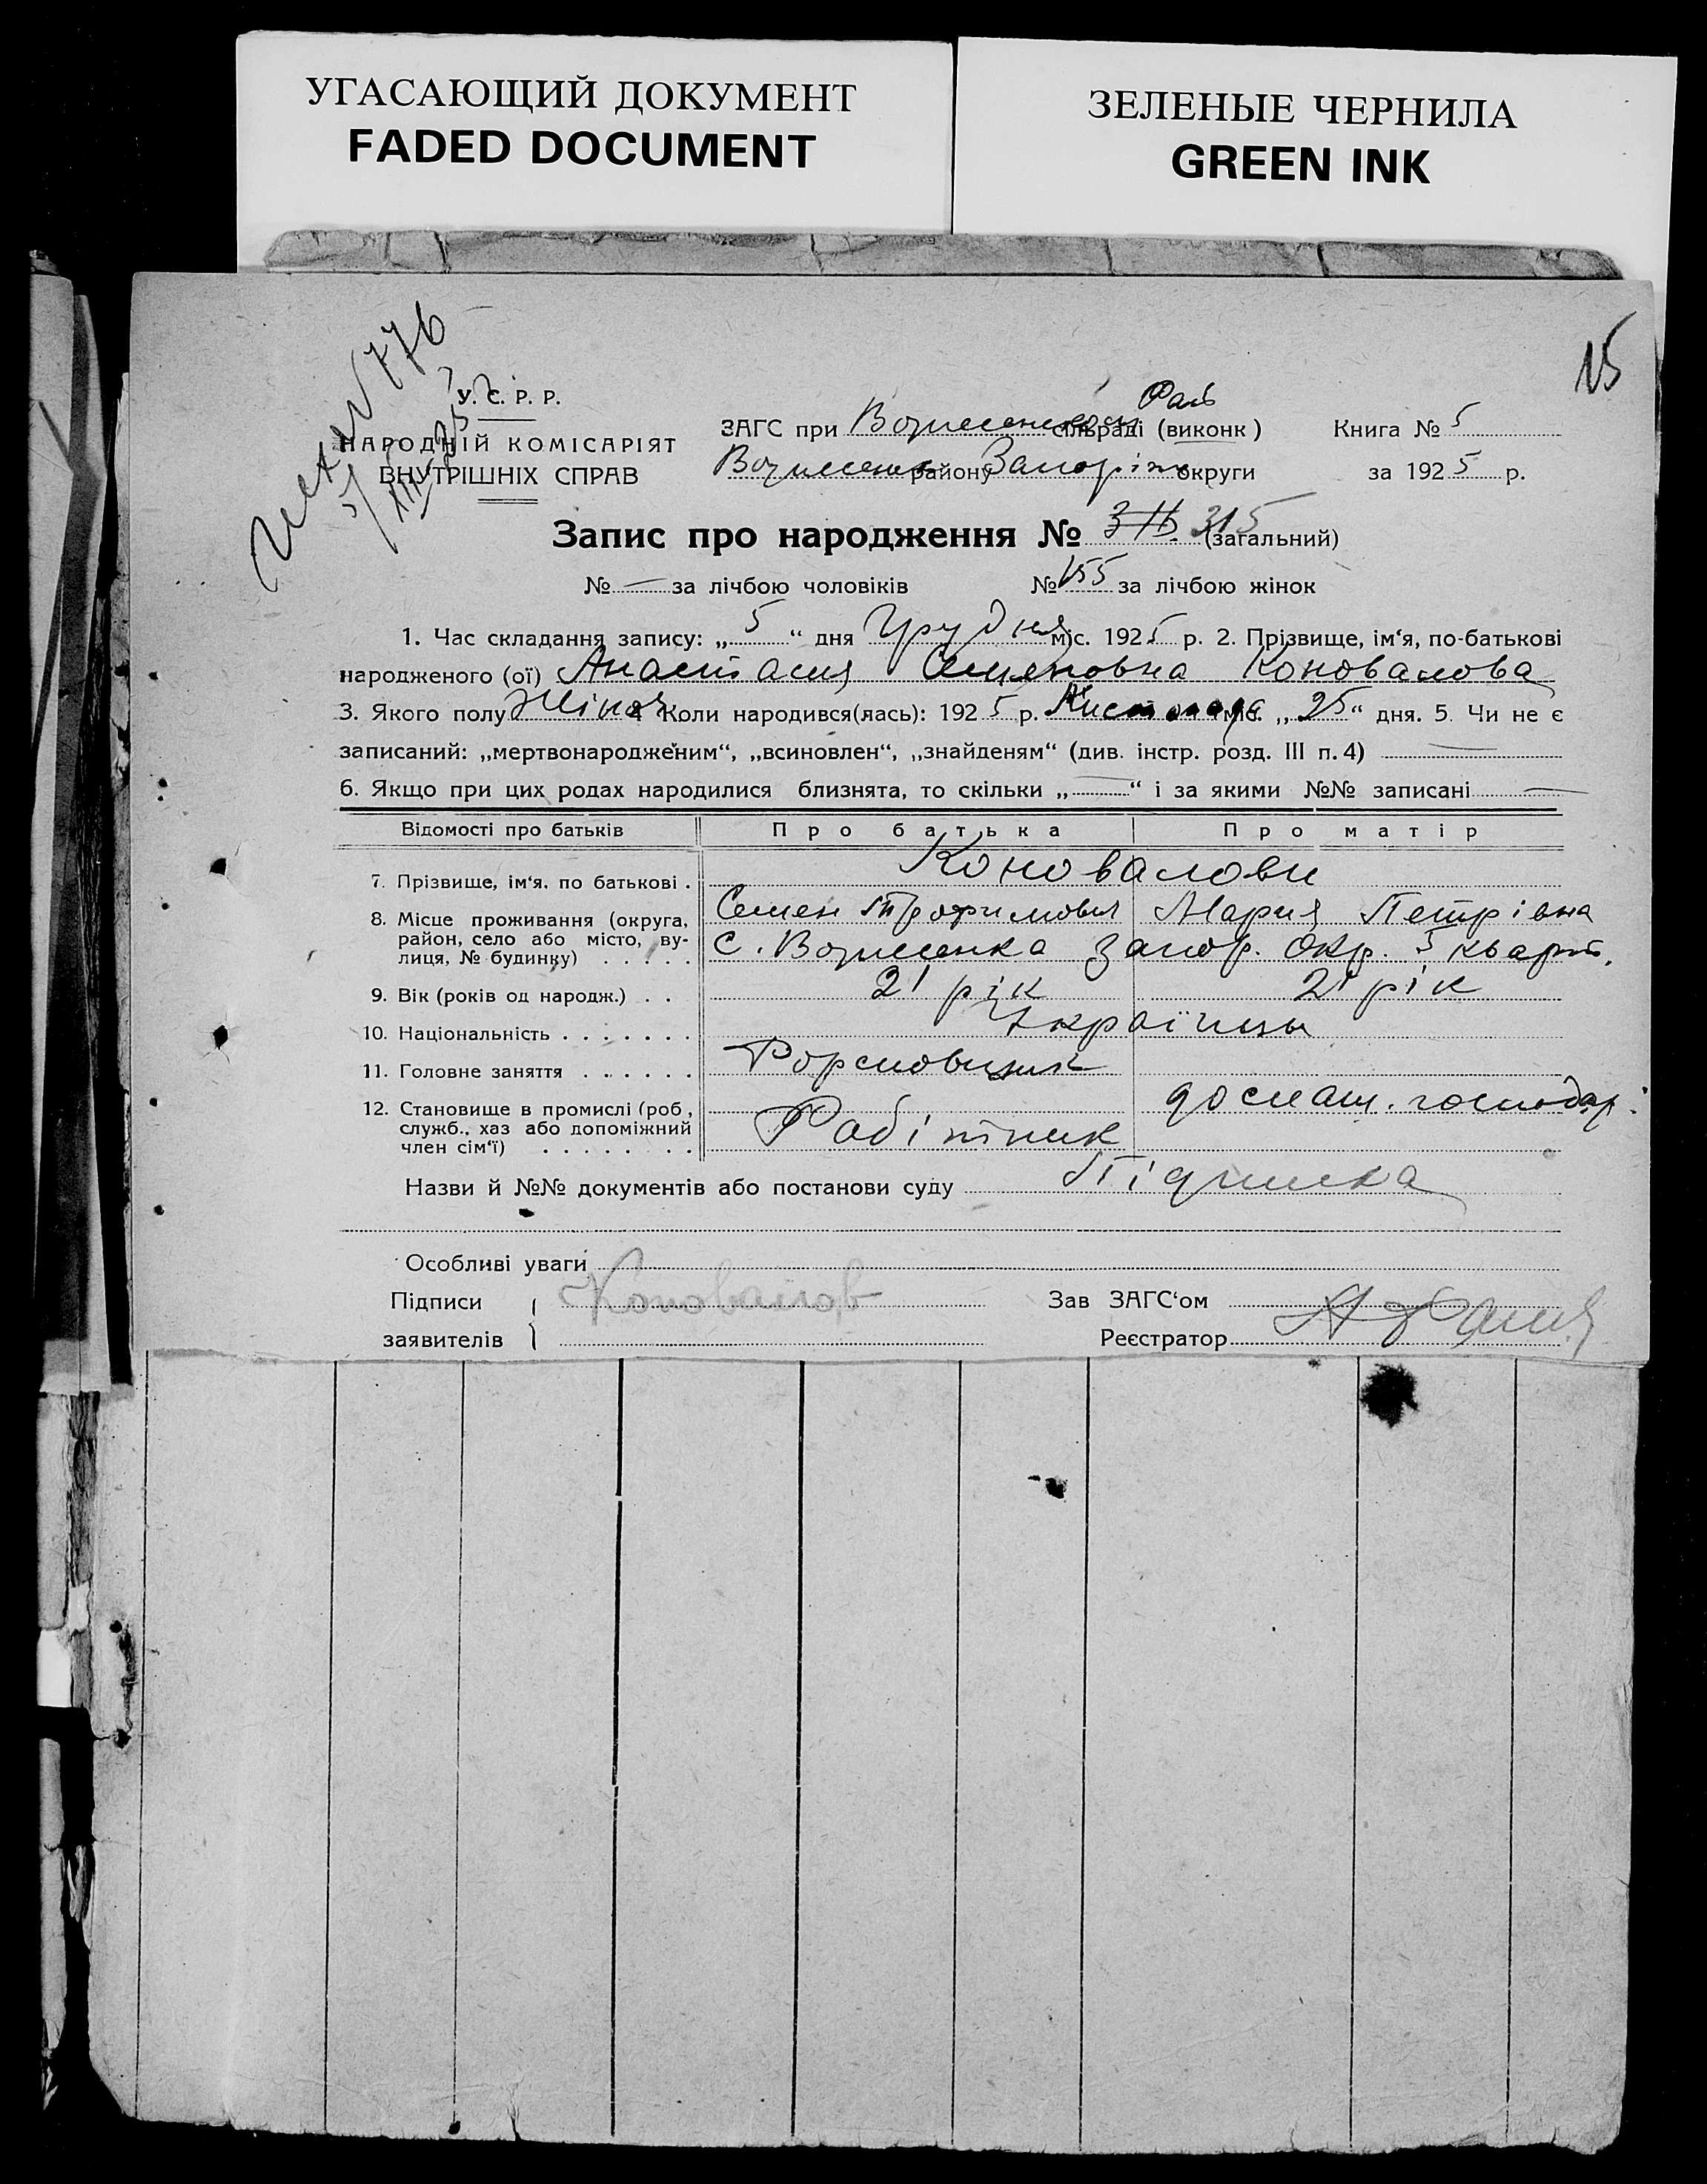 УГАСАЮЩИЙ ДОКУМЕНТ
FADED DOCUMENT
ЗЕЛЕНЫЕ ЧЕРНИЛА
GREEN INK
15
N 776
У. С. Р. Р.
НАРОДНІЙ КОМІСАРІЯТ
ВНУТРІШНІХ СПРАВ
ЗАГС при сільраді (виконк) Книга № 5
району Запоріж округи за 1925 р.
Запис про народження № 315 (загальний)
№ — за лічбою чоловіків № 155 за лічбою жінок
1. Час складання запису: „ 5 “ дня Грудня міс. 1925 р. 2. Прізвище, ім‘я, по-батькові
народженого (ої) Анастасия Семеновна Коновалова
3. Якого полу Жіноч 4 Коли народився(лась): 1925 р. Листопада міс. „ 25 “ дня. 5. Чи не є
записаний: „мертвонародженим“, „всиновлен“, „знайденям“ (див. інстр. розд. III п. 4) —
6. Якщо при цих родах народилися близнята, то скільки „ — “ і за якими №№ записані —
Відомості про батьків Про батька Про матір
7. Прізвище, ім‘я, по батькові . Коновалови
Семен Трофимович Мария Петрівна
8. Місце проживання (округа,
район, село або місто, ву-
лиця, № будинку) . . . . . с. Вознесенка Запор. Окр. 5 кварт.
9. Вік (років од народж.) . . 21 рік 21 рік
10. Національність . . . . . . . Українцы
11. Головне заняття . . . . . . Формовщик
12. Становище в промислі (роб.,
служб., хаз або допоміжний
член сім‘ї) . . . . . . . . Робітник домаш. господар.
Назви й №№ документів або постанови суду Підписка
Особливі уваги
Підписи Коновалов Зав ЗАГС‘ом
заявителів Реєстратор